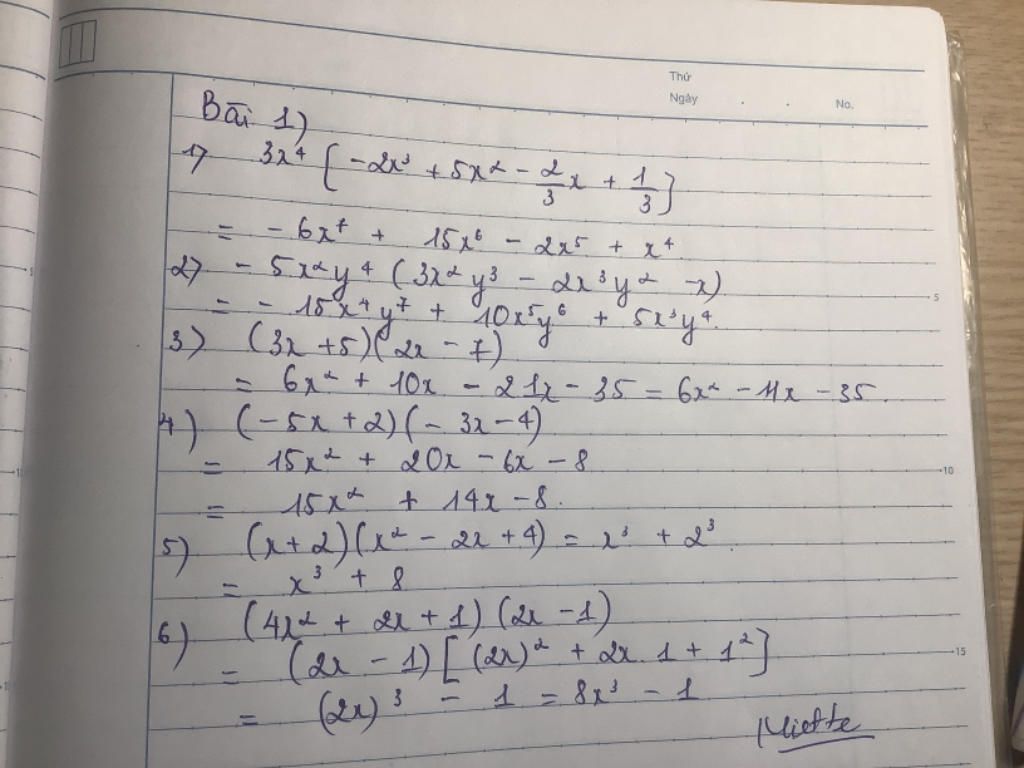 Thứ
Ngày . . No.
Bài 1)
1) 3x⁴ [-2x³ + 5x² - 2/3 x + 1/3]
= - 6x⁷ + 15x⁶ - 2x⁵ + x⁴.
2) - 5x²y⁴ (3x²y³ - 2x³y² - x)
= - 15x⁴y⁷ + 10x⁵y⁶ + 5x³y⁴.
3) (3x + 5)(2x - 7)
= 6x² + 10x - 21x - 35 = 6x² - 11x - 35.
5
4) (-5x + 2)(- 3x - 4)
= 15x² + 20x - 6x - 8
10
= 15x² + 14x - 8.
5) (x + 2)(x² - 2x + 4) = x³ + 2³.
= x³ + 8
6) (4x² + 2x + 1)(2x - 1)
= (2x - 1)[(2x)² + 2x. 1 + 1²]
15
= (2x)³ - 1 = 8x³ - 1
Miette